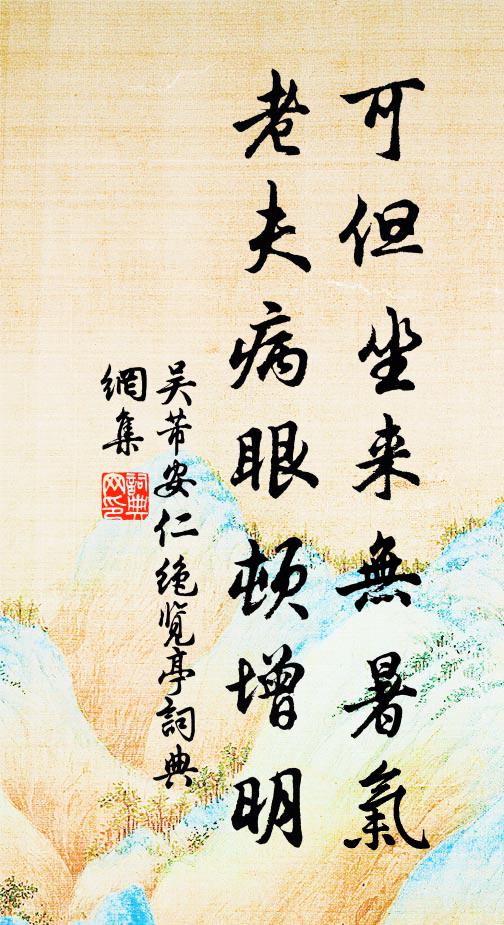 可但坐来無暑氣
老夫病眼頓增明
吴芾安仁绝览亭詞典
網集
詞典
网印